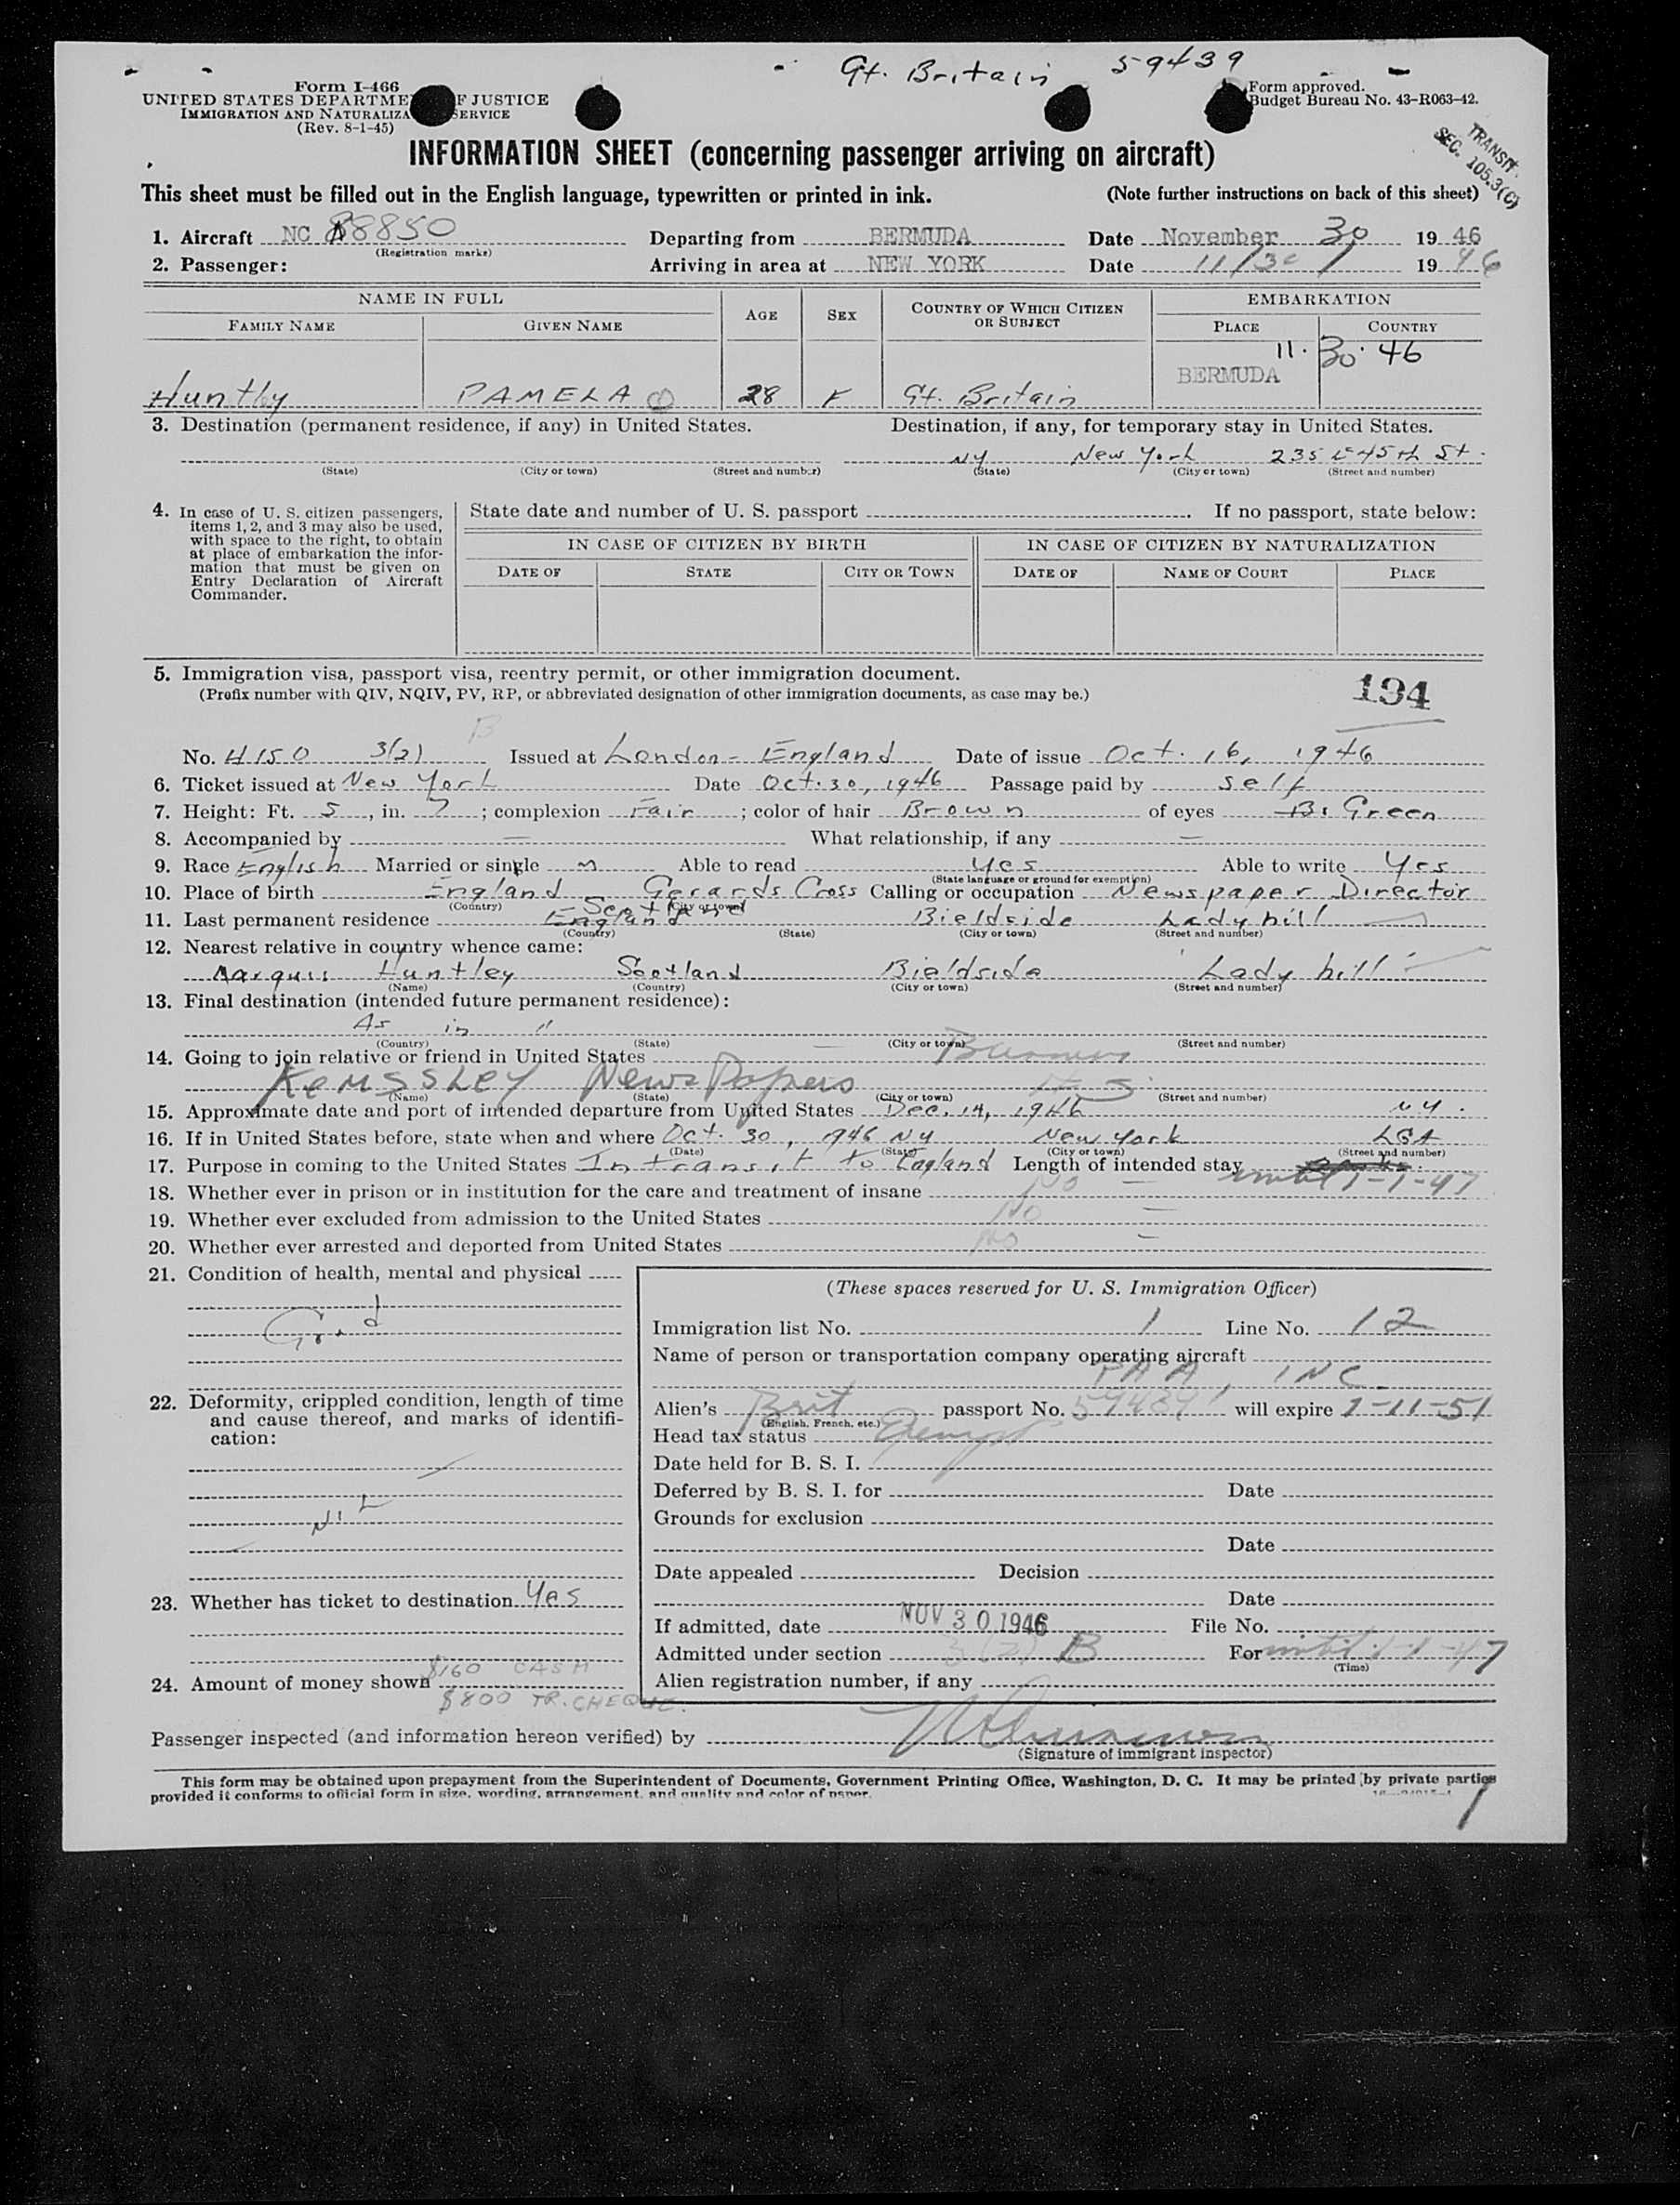 Gt. Britain 59439
Form I-466
UNITED STATES DEPARTME F JUSTICE
IMMIGRATION AND NATURALIZA SERVICE
(Rev. 8-1-45)
Form approved.
Budget Bureau No. 43-R063-42.
TRANSIT
SEC. 105.3(C)
INFORMATION SHEET (concerning passenger arriving on aircraft)
This sheet must be filled out in the English language, typewritten or printed in ink. (Note further instructions on back of this sheet)
1. Aircraft NC 88850 Departing from BERMUDA Date November 30 1946
(Registration marks)
2. Passenger: Arriving in area at NEW YORK Date 11/30/ 1946
NAME IN FULL AGE SEX COUNTRY OF WHICH CITIZEN OR SUBJECT EMBARKATION
FAMILY NAME GIVEN NAME PLACE COUNTRY
11. 30. 46
BERMUDA
Huntly PAMELA 28 F Gt. Britain
3. Destination (permanent residence, if any) in United States. Destination, if any, for temporary stay in United States.
NY New York 235 E 45th St.
(State) (City or town) (Street and number) (State) (City or town) (Street and number)
4. In case of U. S. citizen passengers, items 1, 2, and 3 may also be used, with space to the right, to obtain at place of embarkation the information that must be given on Entry Declaration of Aircraft Commander.
State date and number of U. S. passport . If no passport, state below:
IN CASE OF CITIZEN BY BIRTH IN CASE OF CITIZEN BY NATURALIZATION
DATE OF STATE CITY OR TOWN DATE OF NAME OF COURT PLACE
5. Immigration visa, passport visa, reentry permit, or other immigration document.
(Prefix number with QIV, NQIV, PV, RP, or abbreviated designation of other immigration documents, as case may be.)
194
B
No. H150 3(2) Issued at London - England Date of issue Oct. 16, 1946
6. Ticket issued at New York Date Oct. 30, 1946 Passage paid by self
7. Height: Ft. 5, in. 7; complexion Fair; color of hair Brown of eyes Green
8. Accompanied by — What relationship, if any —
9. Race English Married or single m Able to read yes Able to write yes
(State language or ground for exemption)
10. Place of birth England Gerards Cross Calling or occupation Newspaper Director
(Country) (City or town)
Scotland
11. Last permanent residence England Bieldside Ladyhill
(Country) (State) (City or town) (Street and number)
12. Nearest relative in country whence came:
Marquis Huntley Scotland Bieldside Lady hill
(Name) (Country) (City or town) (Street and number)
13. Final destination (intended future permanent residence):
As in "
(Country) (State) (City or town) (Street and number)
14. Going to join relative or friend in United States Business
KEMSSLEY NewsPapers
(Name) (State) (City or town) (Street and number)
15. Approximate date and port of intended departure from United States Dec. 14, 1946 NY.
16. If in United States before, state when and where Oct. 30, 1946 NY New York LGA
(Date) (State) (City or town) (Street and number)
17. Purpose in coming to the United States In transit to England Length of intended stay until 1-1-47
18. Whether ever in prison or in institution for the care and treatment of insane No —
19. Whether ever excluded from admission to the United States No —
20. Whether ever arrested and deported from United States No —
21. Condition of health, mental and physical
Good
22. Deformity, crippled condition, length of time and cause thereof, and marks of identification:
NIL
23. Whether has ticket to destination Yes
24. Amount of money shown $160 CASH
$800 TR. CHEQUE.
(These spaces reserved for U. S. Immigration Officer)
Immigration list No. 1 Line No. 12
Name of person or transportation company operating aircraft
PAA, INC.
Alien's Brit passport No. 59439 will expire 7-11-51
(English, French, etc.)
Head tax status Exempt
Date held for B. S. I.
Deferred by B. S. I. for Date
Grounds for exclusion
Date
Date appealed Decision
Date
If admitted, date NOV 30 1946 File No.
Admitted under section 3(2) B For until 1-1-47
(Time)
Alien registration number, if any
Passenger inspected (and information hereon verified) by
(Signature of immigrant inspector)
This form may be obtained upon prepayment from the Superintendent of Documents, Government Printing Office, Washington, D. C. It may be printed by private parties
provided it conforms to official form in size, wording, arrangement, and quality and color of paper.